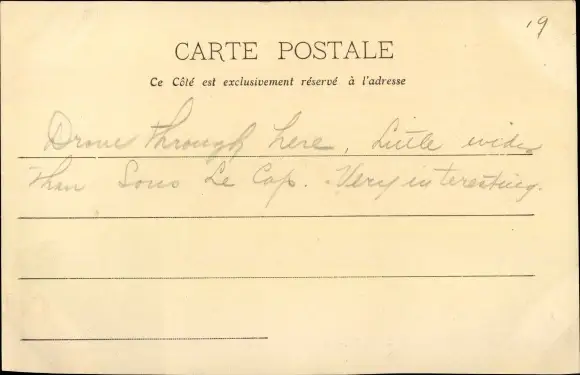 19
CARTE POSTALE
Ce Côté est exclusivement réservé à l'adresse
Drove through here, Little wider
Than Sous Le Cap. Very interesting.